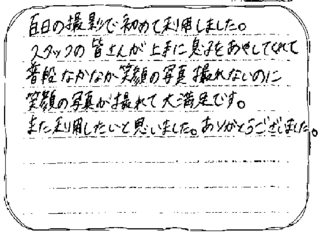 百日の撮影で初めて利用しました。
スタッフの皆さんが上手に息子をあやしてくれて
普段なかなか笑顔の写真撮れないのに
笑顔の写真が撮れて大満足です。
また利用したいと思いました。ありがとうございました。